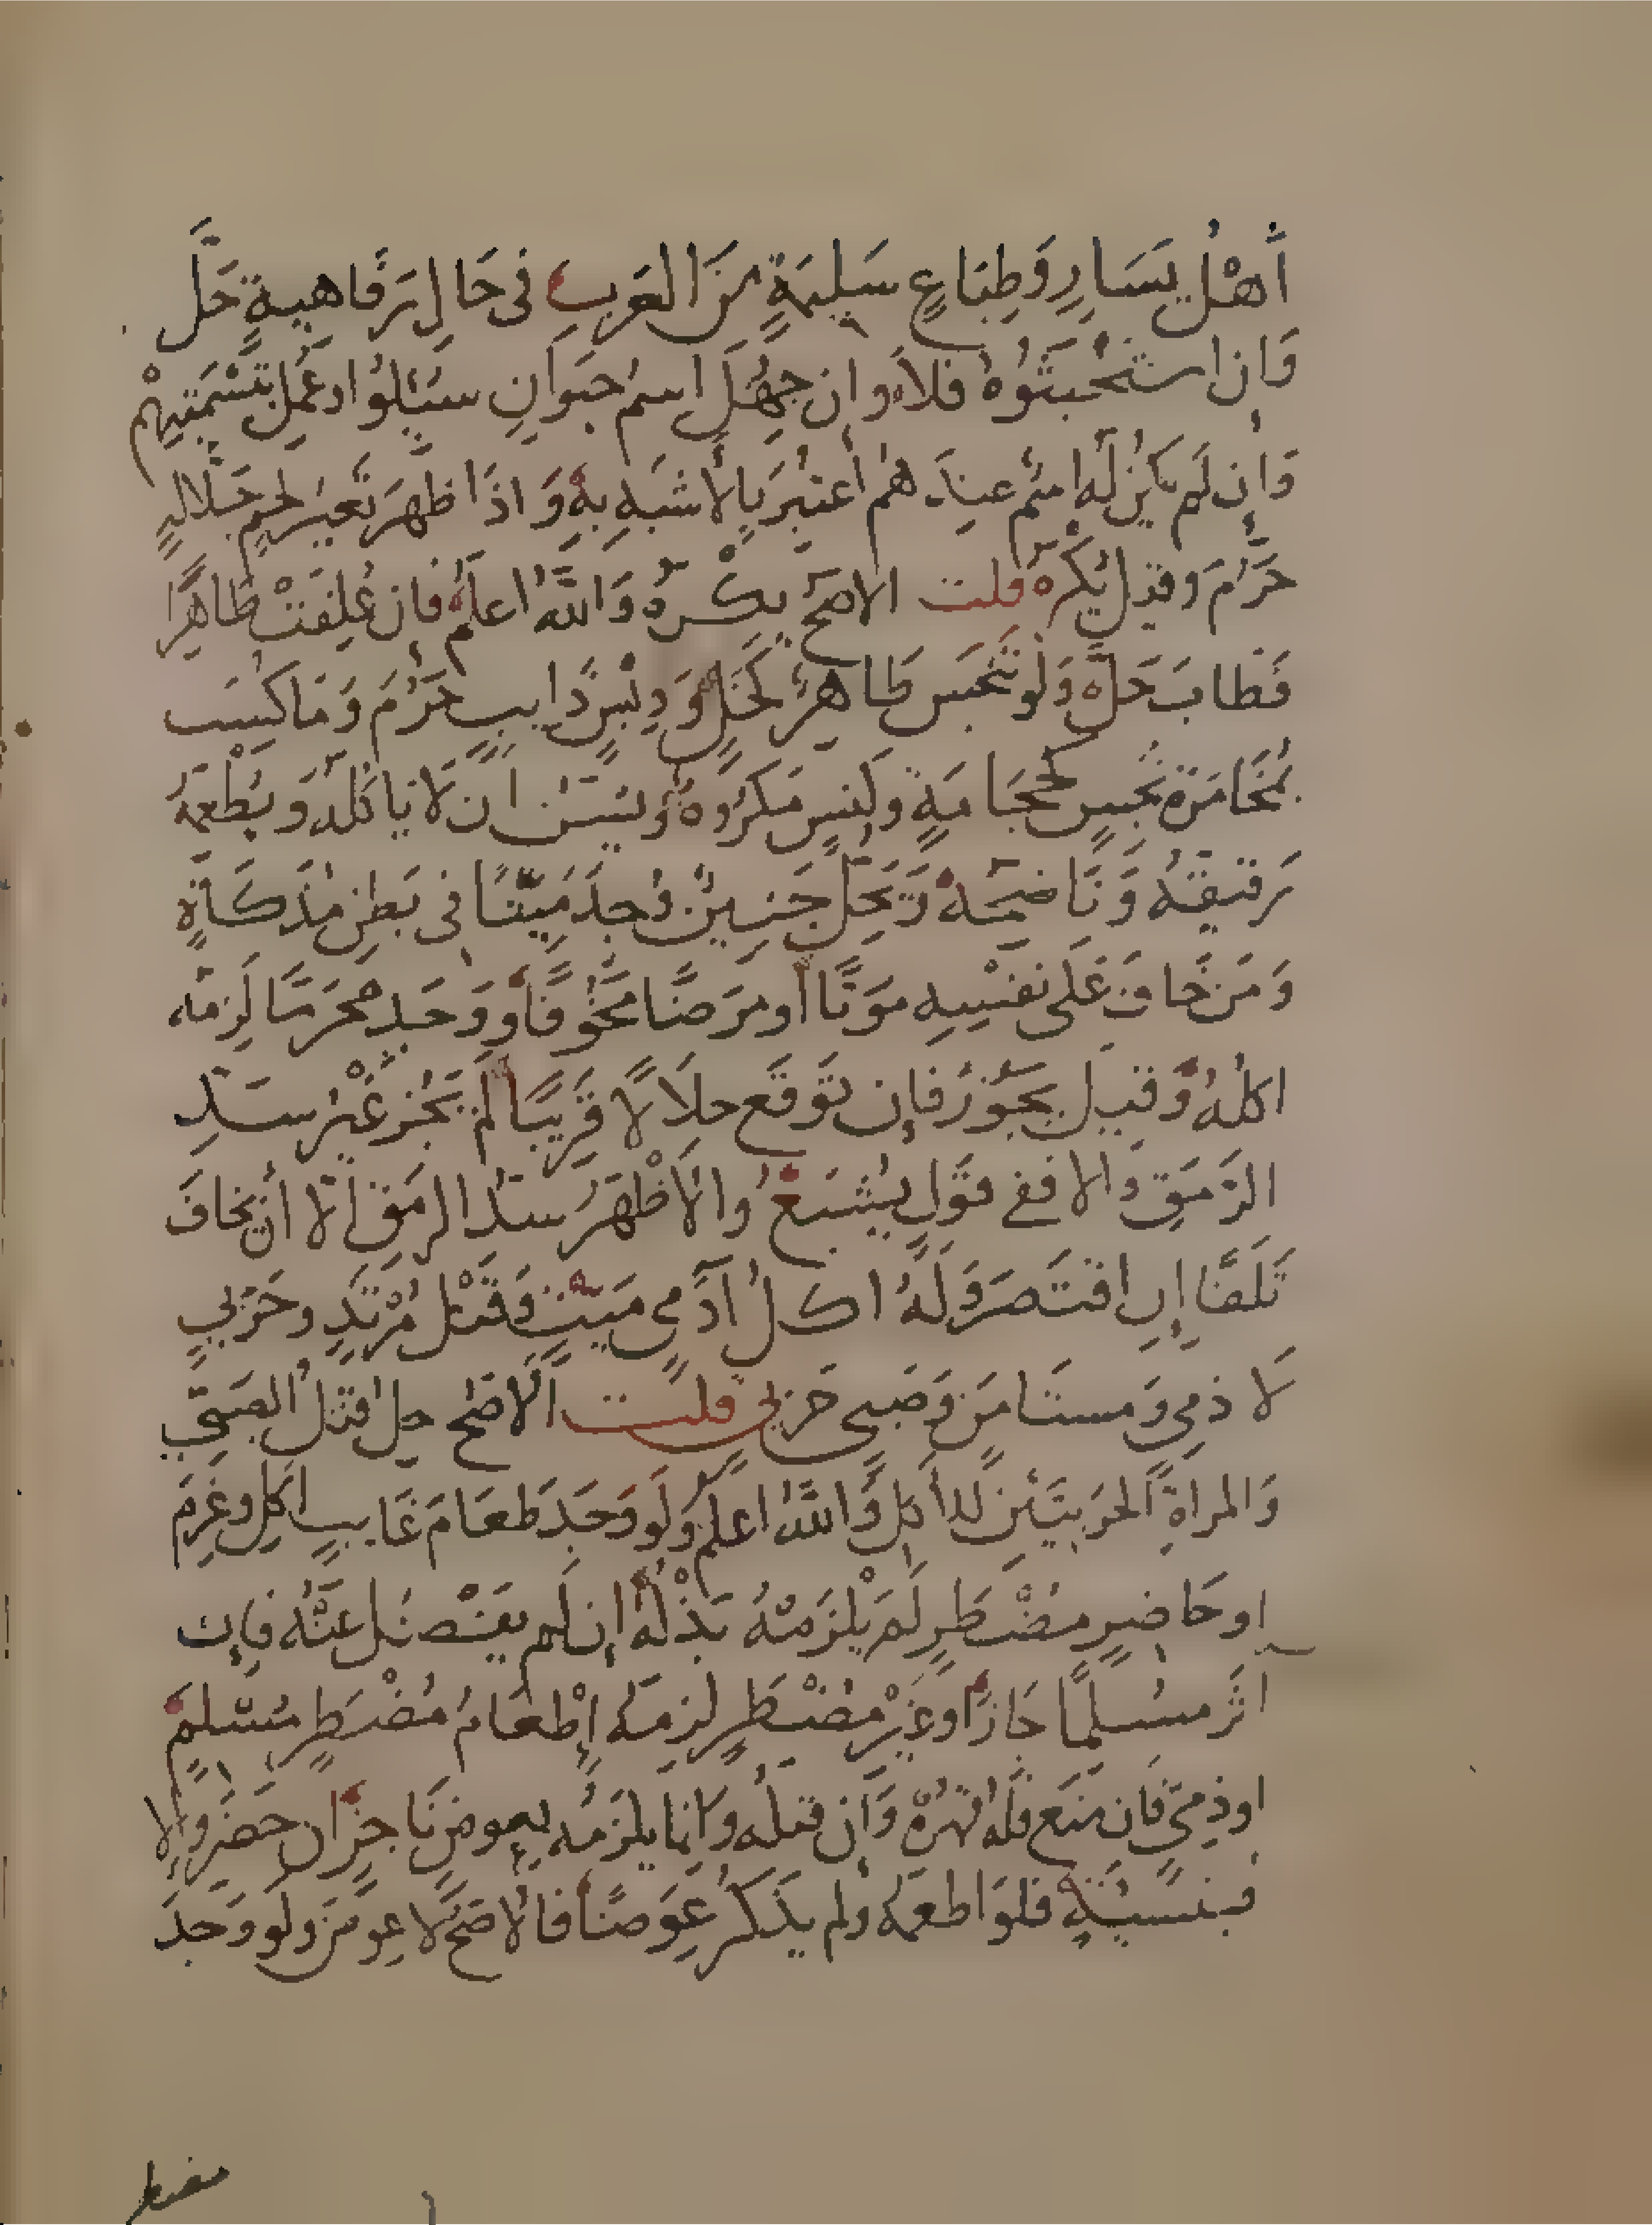 أَهْلُ يَسَارٍ وَطِبَاعٍ سَلِيمَةٍ مِنَ العَرَبِ فِى حَالِ رَفَاهِيةٍ حَلَّ
وَإِن اسْتَخْبَثُوهُ فَلاَ وان جُهِلَ اسمُ حيَوَانٍ سُئِلُوا وعُمِلَ بتَسْمِيَتِهِمْ
وَإِن لَم يَكُن لَه اسمٌ عِندَهُم اعتُبِرَ بِالأشبَهِ بِهِ وَاذَا ظَهَرَ تَغَيُّر لحمِ جَلَّالةٍ
حَرُمَ وقيل يُكرَه قلت الاصَحّ يكرَه وَاللهُ اعلَمُ فَإن عُلِفَتْ طَاهِرًا
فَطَابَ حَلَّ وَلَو تَنَجَّسَ طَاهِرٌ كَخَلٍّ وَدِبْسٍ ذَايبٍ حَرُمَ وَمَا كسَب
بمُخَامَرَة نَجِسٍ كَحجَامَةٍ وكَنسٍ مَكرُوهٌ وَيُسَنّ ان لَا يَاكُلَهُ وَيُطْعِمَهُ
رَقيقَهُ وَنَاضِحَهُ وَيَحِلُّ جَنِينٌ وُجِدَ مَيّتًا فى بَطنِ مُذَكَّاةٍ
وَمَن خَافَ عَلَى نفسِهِ مَوتًا أو مرَضًا مَخُوفًا وَوَجَدَ محَرّمًا لَزِمَهُ
اكلُهُ وَقيل يَجُوزُ فإن تَوَقَّعَ حلَالًا قَرِيبًا لَم يَجُز غَيْرُ سَدِّ
الرَّمَقِ وَالا فَفى قَولٍ يَشْبَعُ والأَظْهَرُ سَدّ الرمَقِ إلّا أَن يَخافَ
تَلَفًا إِن اقتَصَرَ وَلَهُ اكلُ آدَمِىٍّ مَيّتٍ وَقَتْل مُرْتَدٍّ وحَرْبِيٍّ
لَا ذمِىٍّ وَمستَامَنٍ وَصَبِىٍّ حَربىٍّ قلت الاصَحّ حل قتل الصَبِىِّ
وَالمراةِ الحَربِيَّينِ للأكل وَاللهُ اعلَم وَلَو وَجَدَ طَعَامَ غَايبٍ اكل وغَرِمَ
او حَاضِرٍ مضْطَرٍّ لَم يَلزَمْهُ بَذْلُهُ إن لَم يَفْضُل عَنْه فإن
آثَر مسلِمًا جَازَ او غَيْر مضْطَرٍّ لزمَهُ إطْعَامُ مُضْطَرٍّ مُسْلمٍ
او ذِمىٍّ فَإن مَنَع فَلَهُ قهرُهُ وَإن قتلَه وَانمَا يلزَمُه بعوضٍ نَاجِزٍ ان حَضَرَ وَإلا
فبنَسيئةٍ فلو اطعَمَهُ وَلم يذكر عِوَضًا فَالأصَحّ لا عِوَضَ ولو وَجَدَ
مضطر